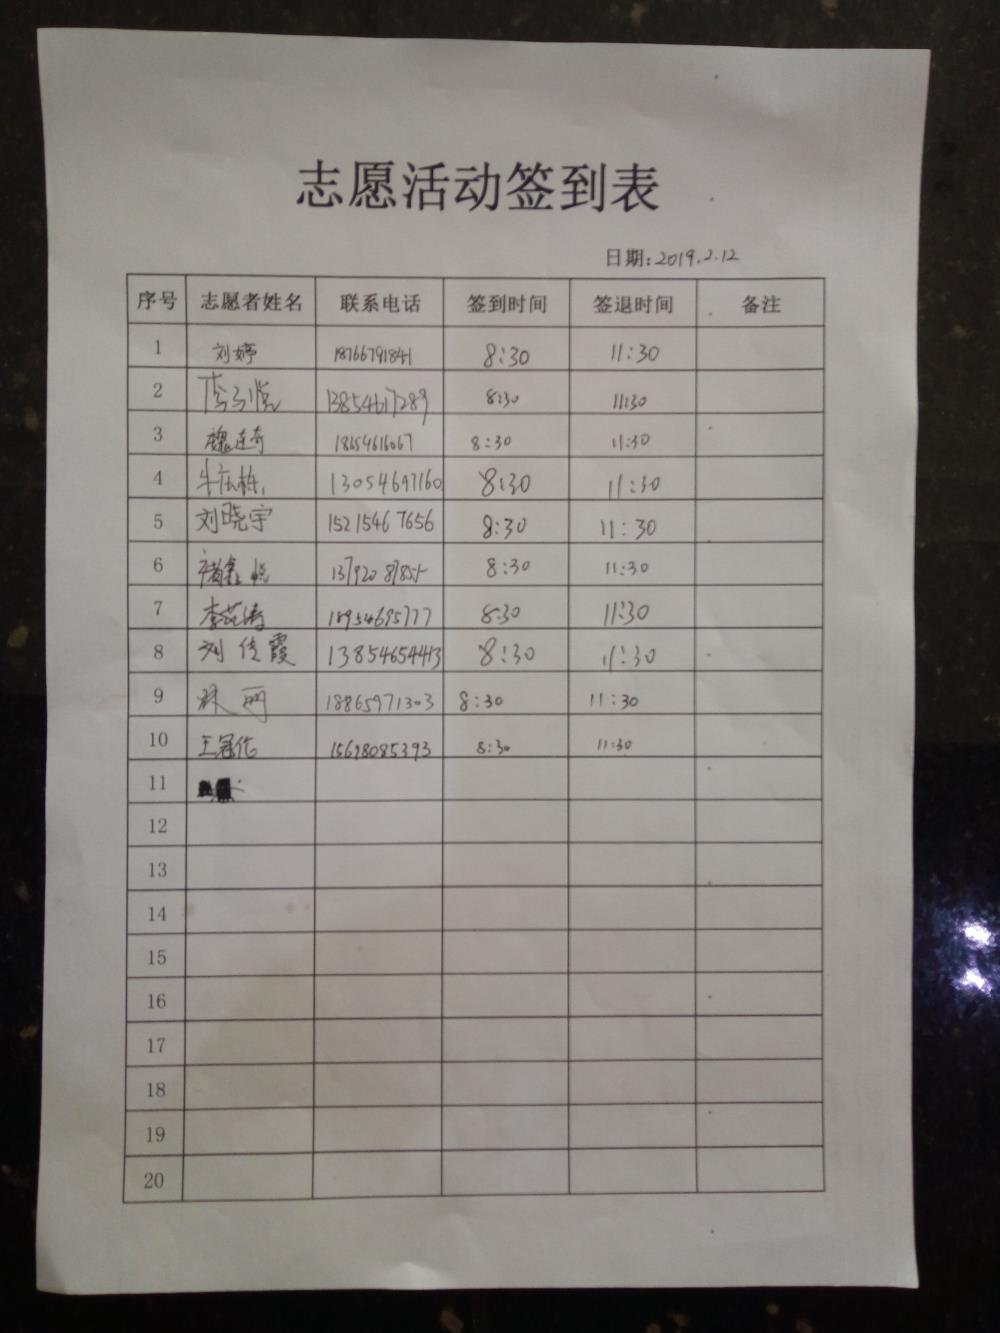 志愿活动签到表
日期:2019.2.12
序号 志愿者姓名 联系电话 签到时间 签退时间 备注
1 刘婷 18766791841 8:30 11:30
2 李子悦 13854617289 8:30 11:30
3 魏连奇 18654616067 8:30 11:30
4 牛庆栋 13054697160 8:30 11:30
5 刘晓宇 15215467656 8:30 11:30
6 鑫悦 13792087855 8:30 11:30
7 李范涛 18954695777 8:30 11:30
8 刘佳霞 13854654413 8:30 11:30
9 丽 18865971303 8:30 11:30
10 王冠佑 15698085393 8:30 11:30
11
12
13
14
15
16
17
18
19
20